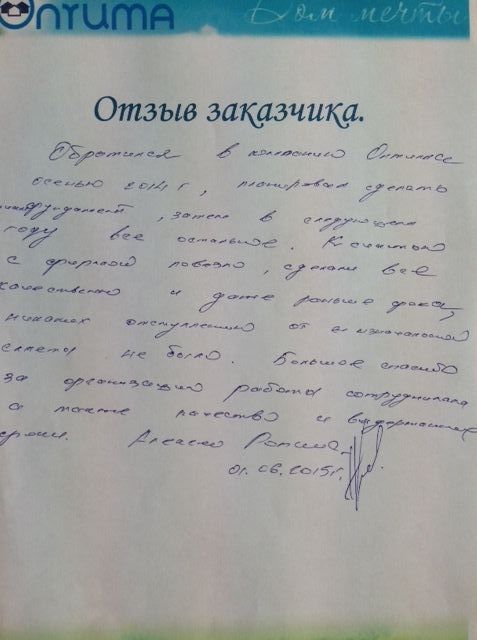 Оптима Дом мечты
Отзыв заказчика.
Обратился в компанию Оптима
осенью 2014 г, планировал сделать
фундамент, затем в следующем
году все остальное. К счастью
с фирмой повезло, сделали все
качественно и даже раньше срока,
никаких отступлений от изначальной
сметы не было. Большое спасибо
за организацию работы сотрудникам
а также качество и выдержанные
сроки. Алексей
01.06.2015 г.